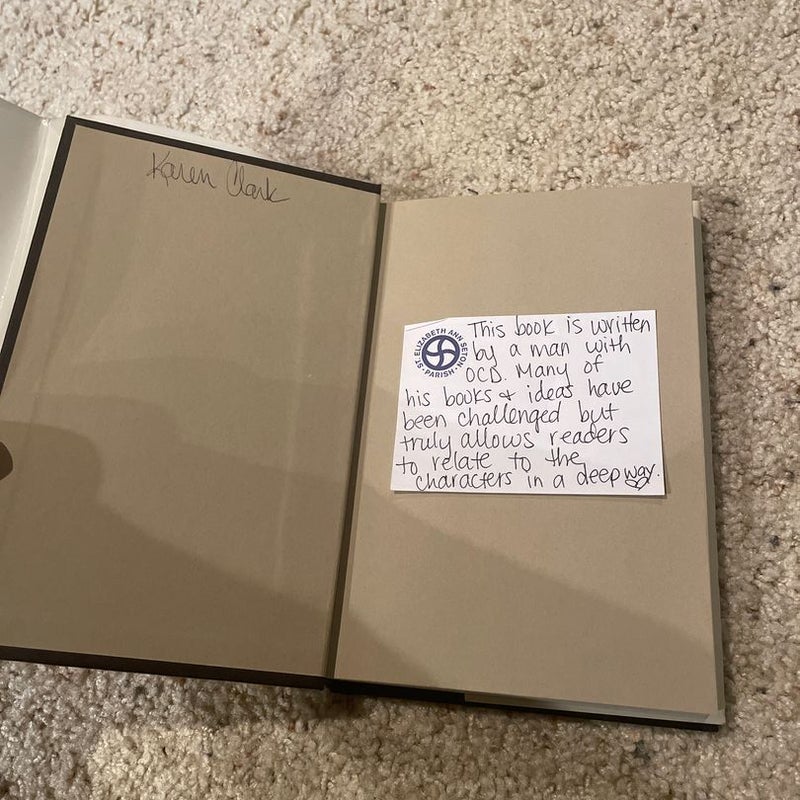 Karen Clark
ST. ELIZABETH ANN SETON
• PARISH •
This book is written
by a man with
OCD. Many of
his books & ideas have
been challenged but
truly allows readers
to relate to the
characters in a deep way.